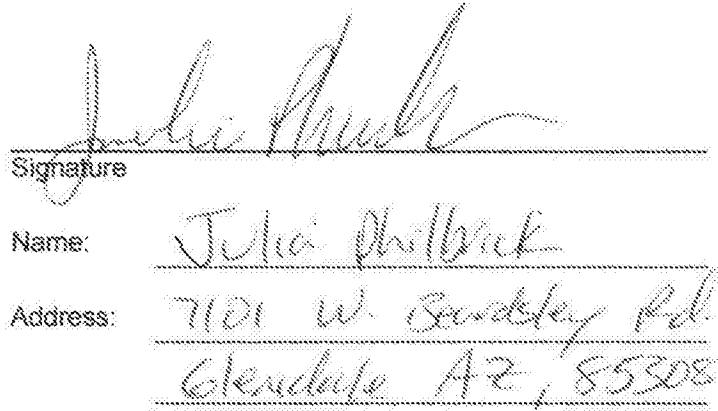 Signature
Name: Julia Philbrick
Address: 7101 W. Beardsley Rd.
Glendale AZ, 85308